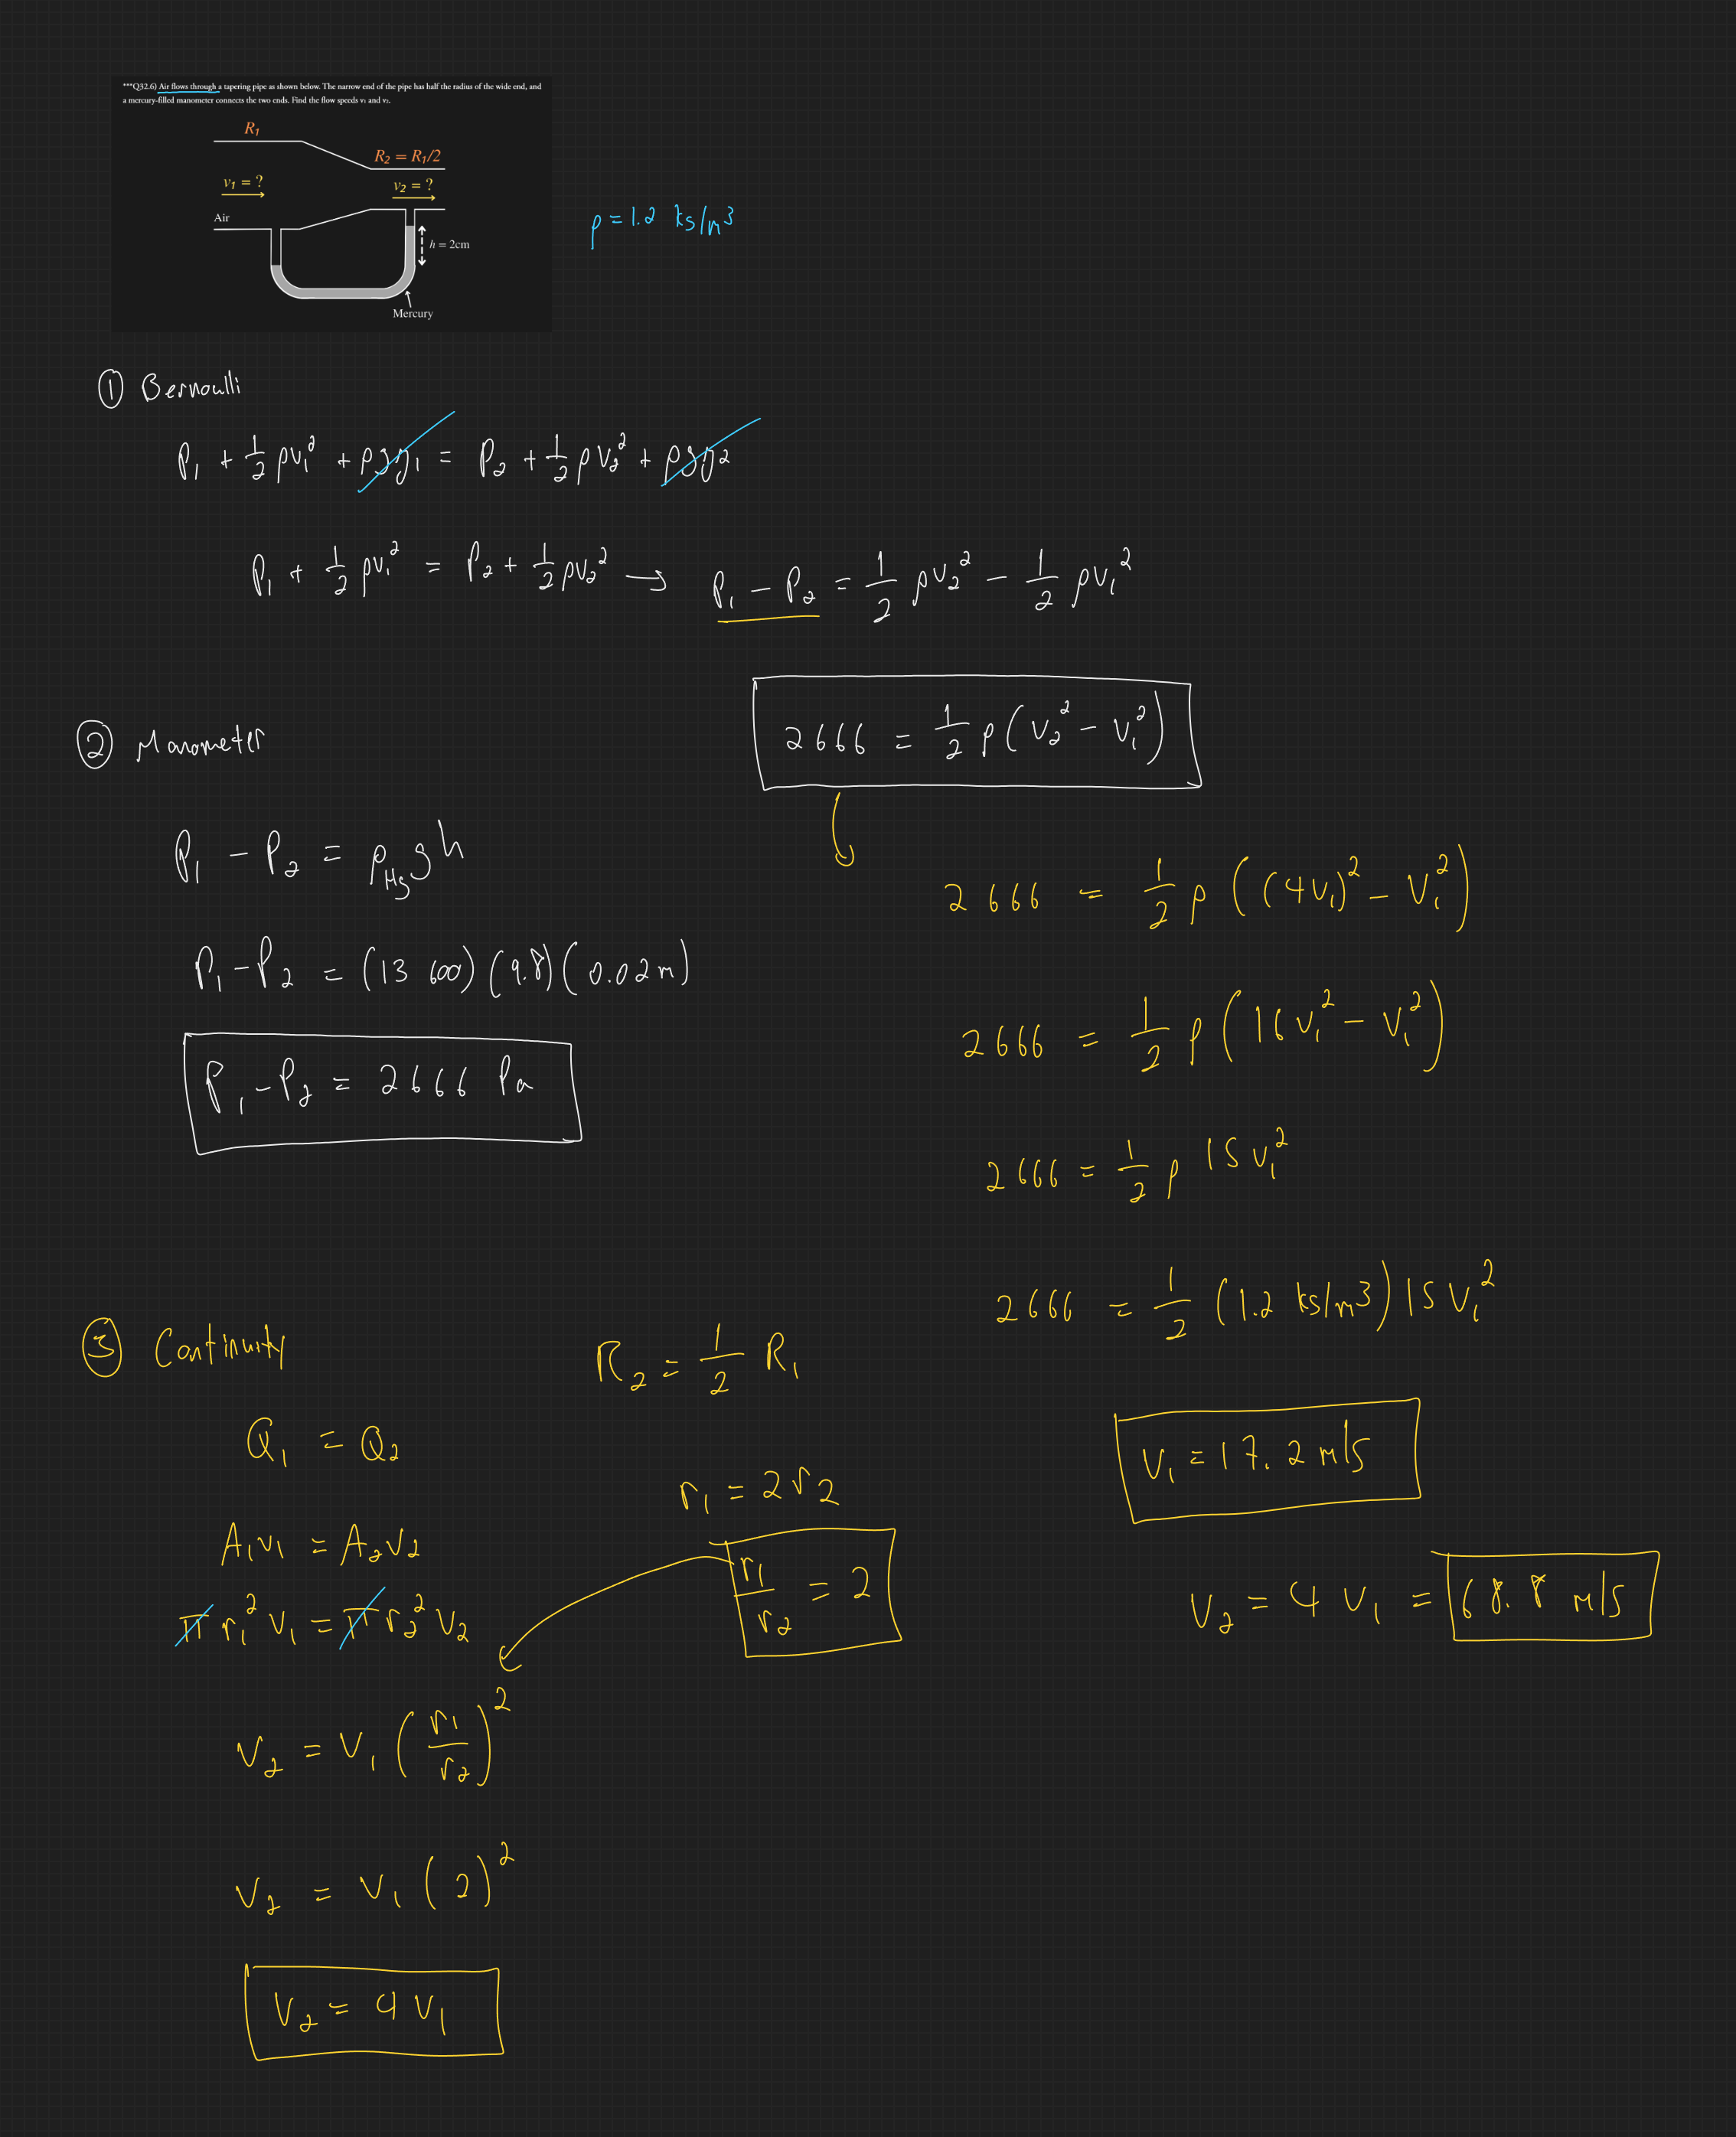 ***Q32.6) Air flows through a tapering pipe as shown below. The narrow end of the pipe has half the radius of the wide end, and
a mercury-filled manometer connects the two ends. Find the flow speeds v₁ and v₂.
R₁
R₂ = R₁/2
v₁ = ?
v₂ = ?
Air
h = 2cm
Mercury
ρ = 1.2 kg/m³
① Bernoulli
P₁ + 1/2 ρv₁² + ρgy₁ = P₂ + 1/2 ρv₂² + ρgy₂
P₁ + 1/2 ρv₁² = P₂ + 1/2 ρv₂² → P₁ − P₂ = 1/2 ρv₂² − 1/2 ρv₁²
2666 = 1/2 ρ(v₂² − v₁²)
② Manometer
P₁ − P₂ = ρHg g h
P₁ − P₂ = (13 600)(9.8)(0.02m)
P₁ − P₂ = 2666 Pa
2666 = 1/2 ρ((4v₁)² − v₁²)
2666 = 1/2 ρ(16v₁² − v₁²)
2666 = 1/2 ρ 15v₁²
2666 = 1/2 (1.2 kg/m³) 15v₁²
v₁ = 17.2 m/s
v₂ = 4v₁ = 68.8 m/s
③ Continuity
Q₁ = Q₂
A₁v₁ = A₂v₂
πr₁²v₁ = πr₂²v₂
v₂ = v₁(r₁/r₂)²
v₂ = v₁(2)²
v₂ = 4v₁
R₂ = 1/2 R₁
r₁ = 2r₂
r₁/r₂ = 2